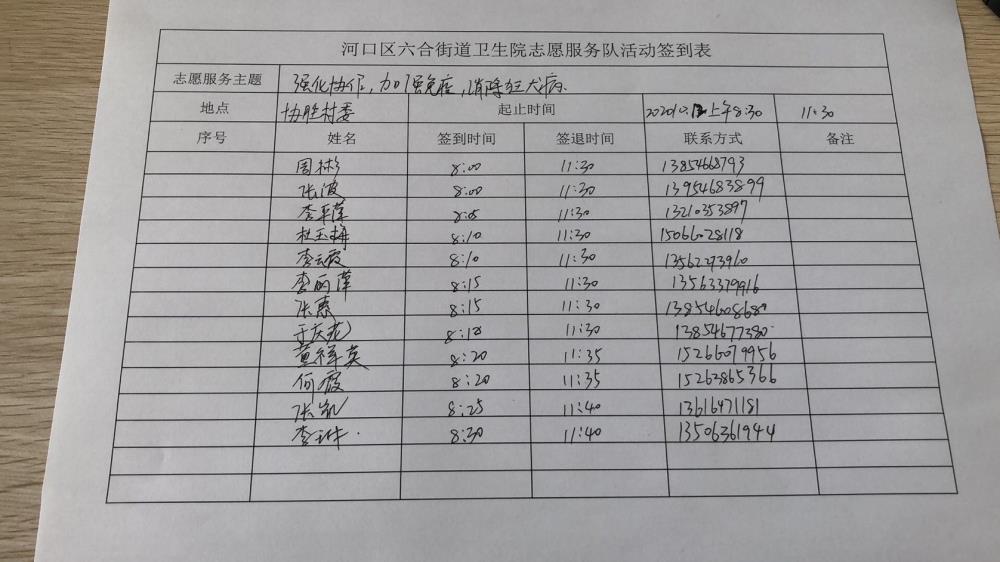 河口区六合街道卫生院志愿服务队活动签到表
志愿服务主题 强化协作,加强免疫,消除狂犬病.
地点 协胜村委 起止时间 上午8:30 11:30
序号 姓名 签到时间 签退时间 联系方式 备注
周彬 8:00 11:30 13854668793
张波 8:00 11:30 13954683899
李平萍 8:05 11:30 13210353897
杜玉梅 8:10 11:30 15066028118
李云霞 8:10 11:30 13562293960
李丙萍 8:15 11:30 13563379916
张惠 8:15 11:30 13854608680
于庆花 8:18 11:30 13854677380
董祥英 8:20 11:35 15266079956
何霞 8:20 11:35 15263865366
张凯 8:25 11:40 13616471181
李琳 8:30 11:40 13506361944